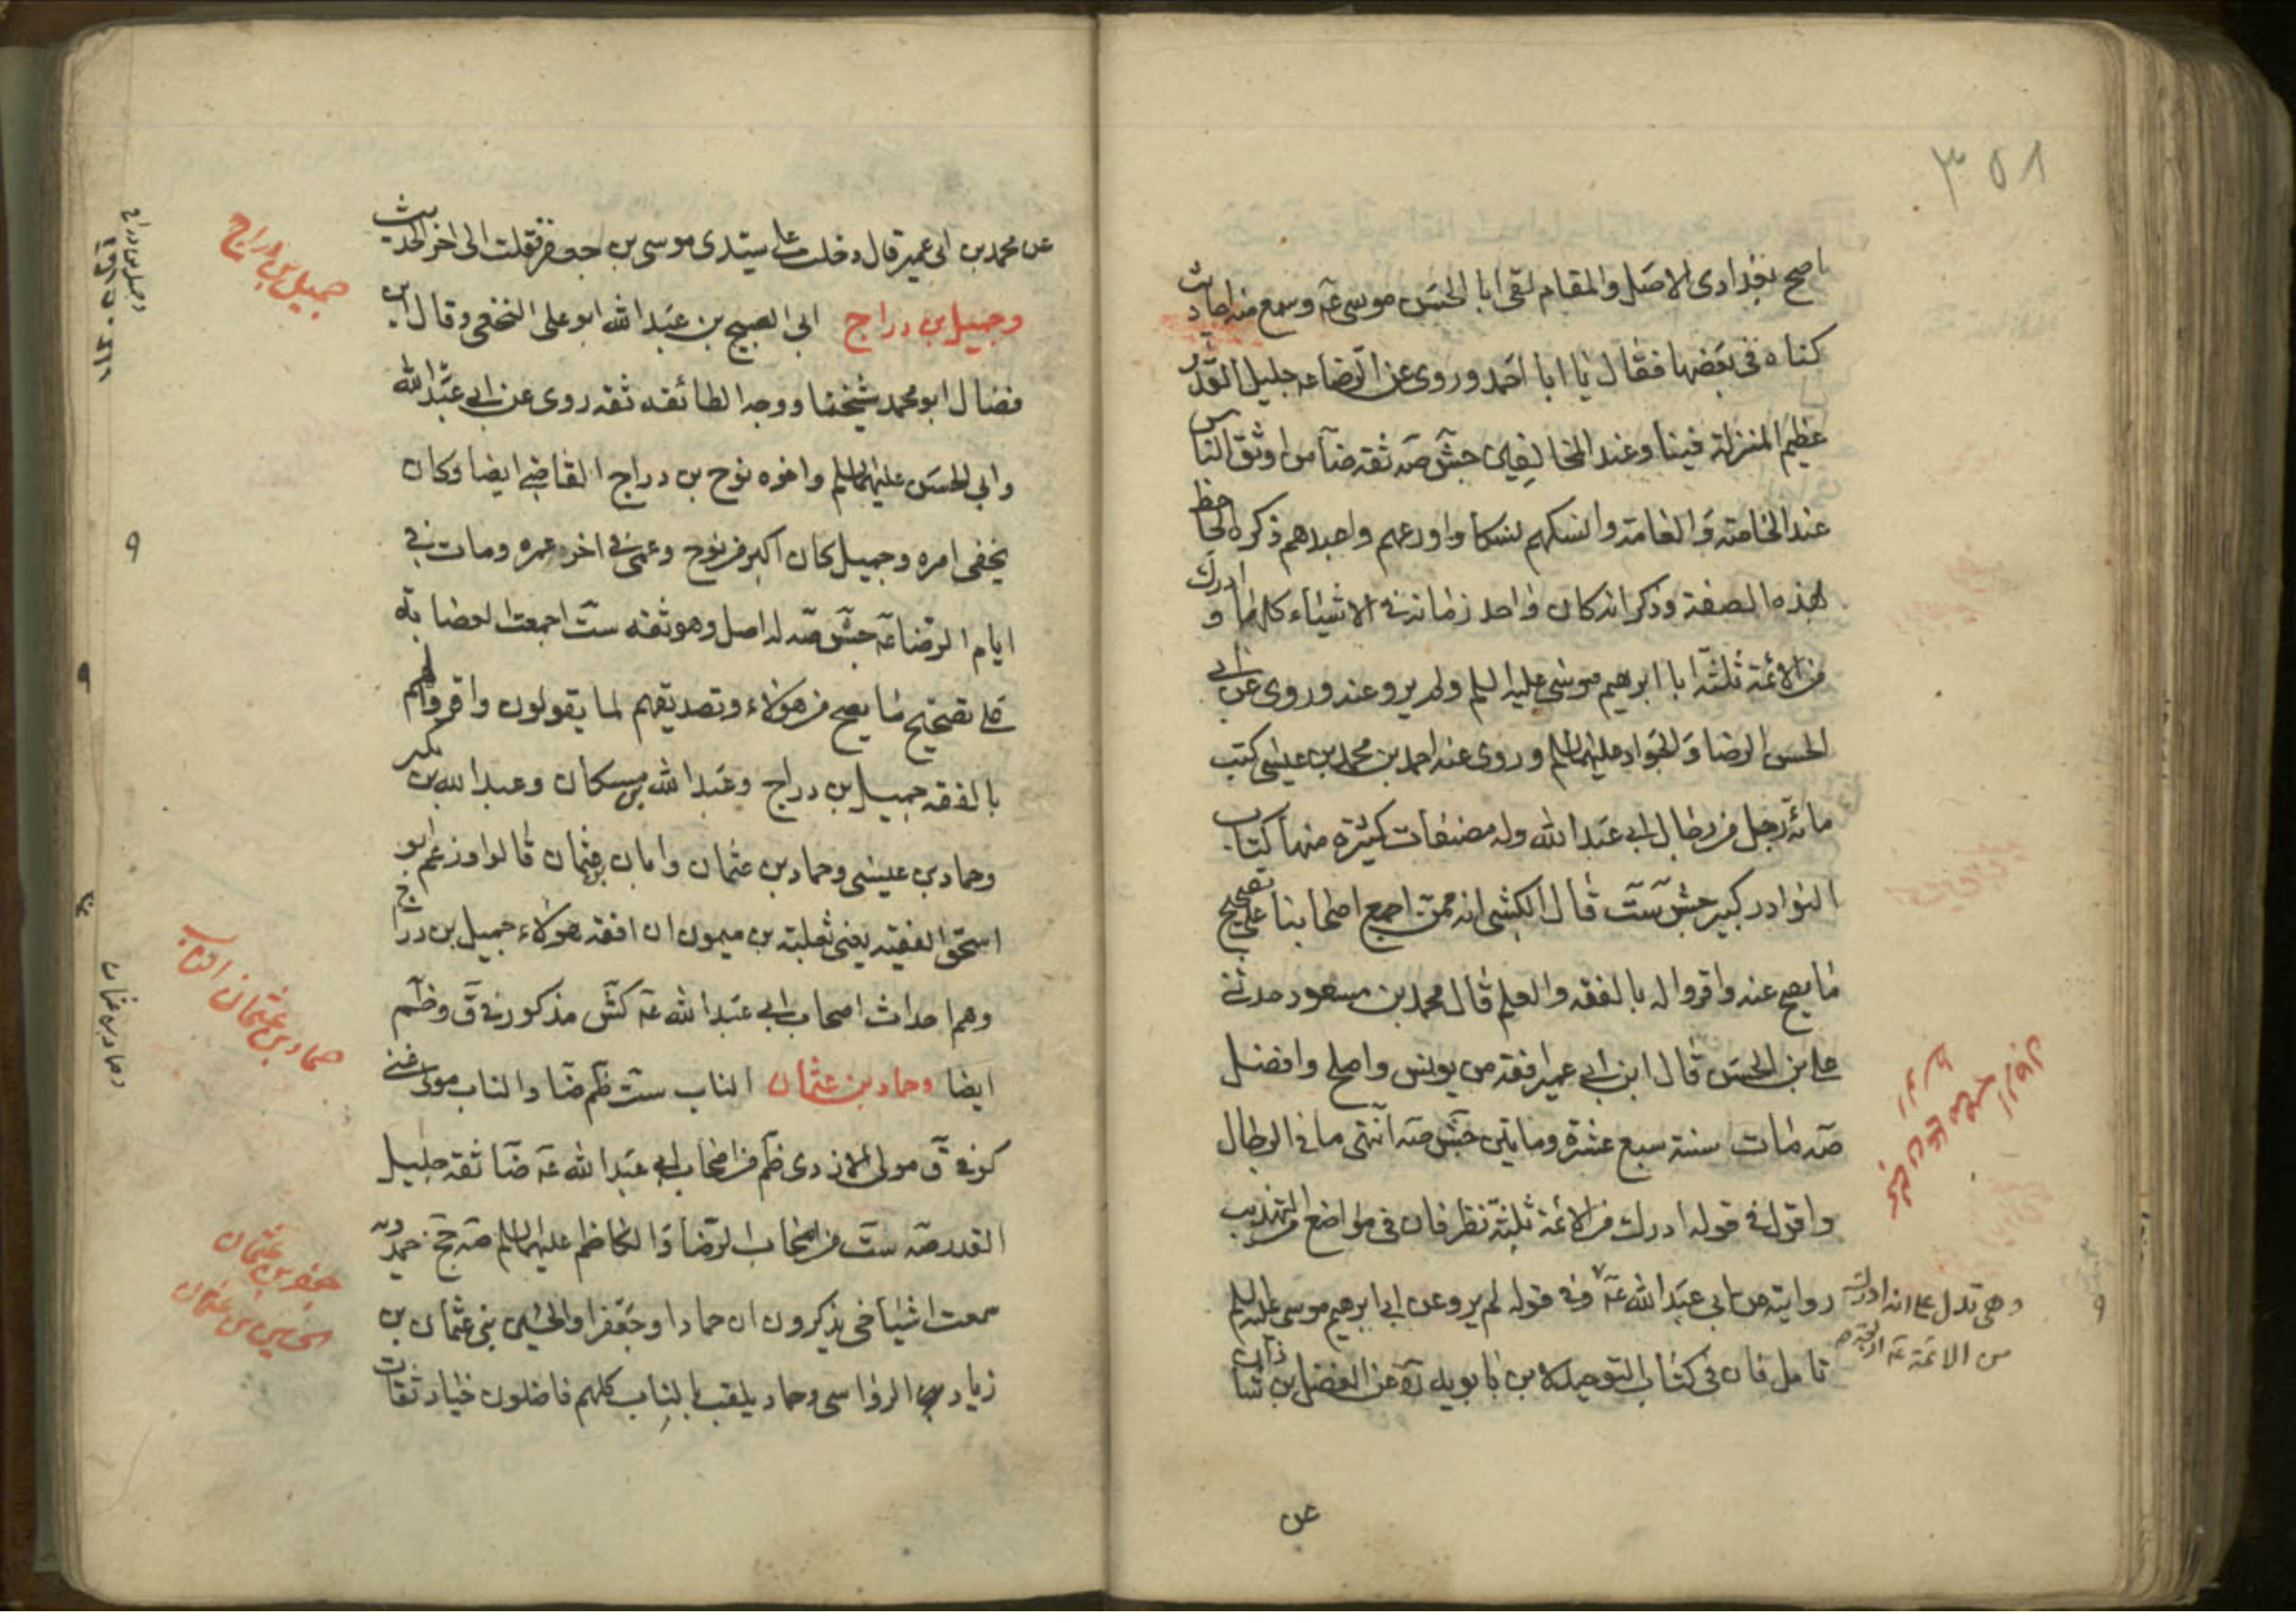 ٣٥٨
اصح بغدادى الاصل والمقام لقى ابا الحسن موسى عه وسمع منه احاديث
كناه فى بعضها فقال يا ابا احمد وروى عن الرضا عه جليل القدر
عظيم المنزلة فينا وعند المخالفين جش صه ثقه ضا من اوثق الناس
عند الخاصة والعامة وانسكهم نسكا واورعهم واعبدهم ذكره الجاحظ
بهذه الصفة وذكر انه كان واحد زمانه فى الاشياء كلها وادرك
من الائمة ثلثة ابا ابرهيم موسى عليه السلم ولم يرو عنه وروى عن ابى
الحسن الرضا والجواد عليهما السلم وروى عنه احمد بن محمد بن عيسى كتب
مائة رجل من رجال ابى عبد الله وله مصنفات كثيرة منها كتاب
النوادر كبير جش ست قال الكشى انه ممن اجمع اصحابنا على تصحيح
ما يصح عنه واقروا له بالفقه والعلم قال محمد بن مسعود حدثنى
على بن الحسن قال ابن ابى عمير افقه من يونس واصلح وافضل
صه مات سنة سبع عشرة ومايتين جش صه انتهى ما فى الرجال
واقول فى قوله ادرك من الائمة ثلثة نظر فان فى مواضع من التهذيب
روايته عن ابى عبد الله عه وفى قوله لم يرو عن ابى ابرهيم موسى عليه السلم
وهى تدل على انه ادرك
من الائمة عه اربعة
تامل فان فى كتاب التوحيد لابن بابويه ره عن الفضل بن شاذان
عن
عن محمد بن ابى عمير قال دخلت على سيدى موسى بن جعفر فقلت الى اخر الحديث
جميل بن دراج
وجميل بن دراج ابى الصبيح بن عبد الله ابو على النخعى وقال ابن
فضال ابو محمد شيخنا ووجه الطائفه ثقه روى عن ابى عبد الله
وابى الحسن عليهما السلم واخوه نوح بن دراج القاضى ايضا وكان
يخفى امره وجميل كان اكبر من نوح وعمى فى اخر عمره ومات فى
ايام الرضا عه جش صه له اصل وهو ثقه ست اجمعت العصابة
على تصحيح ما يصح من هؤلاء وتصديقهم لما يقولون واقروا لهم
بالفقه جميل بن دراج وعبد الله بن مسكان وعبد الله بن بكير
وحماد بن عيسى وحماد بن عثمان وابان بن عثمان قالوا وزعم ابو
اسحق الفقيه يعنى ثعلبة بن ميمون ان افقه هؤلاء جميل بن دراج
وهم احداث اصحاب ابى عبد الله عه كش مذكور فى ق وظم
حماد بن عثمان الناب
ايضا وحماد بن عثمان الناب ست ظم ضا والناب مولى غنى
كوفى ق مولى الازدى ظم من اصحاب ابى عبد الله عه ضا ثقه جليل
القدر صه ست من اصحاب الرضا والكاظم عليهما السلم صه جخ حمدويه
جعفر بن عثمان
الحسين بن عثمان
سمعت اشياخى يذكرون ان حمادا وجعفرا والحسين بنى عثمان بن
زياد الرواسى وحماد يلقب بالناب كلهم فاضلون خيار ثقات